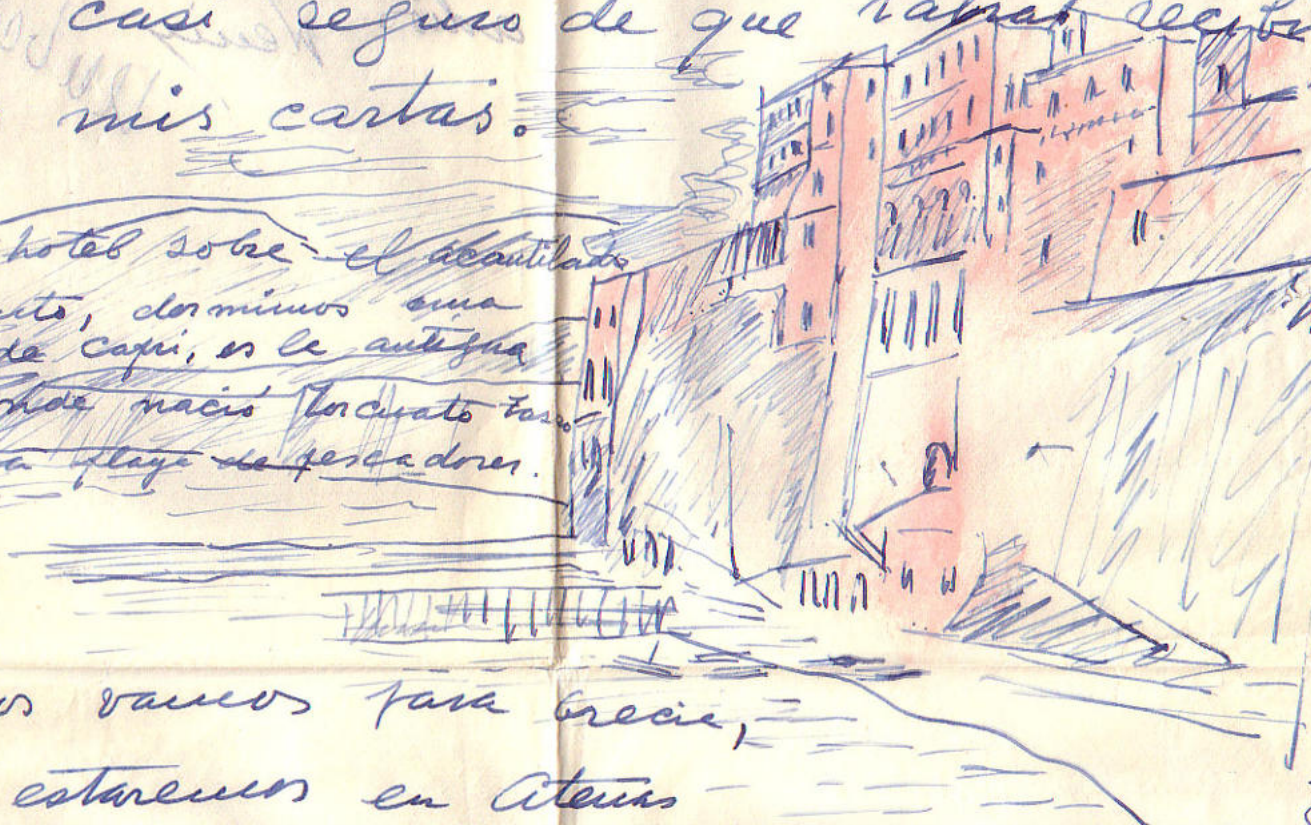 casi seguro de que vayas
mis cartas.
hotel sobre el acantilado
dormimos una
de capri, es la antigua
nde nació Torcuato Tasso
a playa de pescadores.
os vamos para Grecia,
estaremos en Atenas